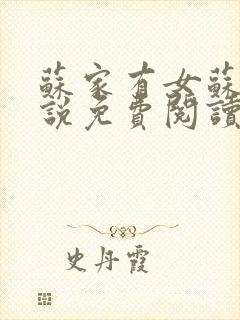 蘇家有女蘇
說免費閱讀
史丹霞